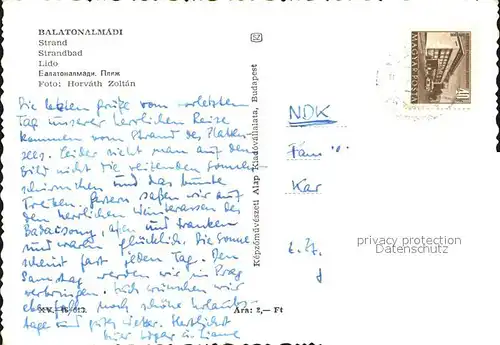 BALATONALMÁDI
Strand
Strandbad
Lido
Балатональмади. Пляж
Foto: Horváth Zoltán
Die letzten Grüße vom vorletzten
Tag unserer herrlichen Reise
kommen vom Strand des Platten-
sees. Leider sieht man auf dem
Bild nicht die reizenden Sonnen-
schirmchen und das bunte
Treiben. Gestern saßen wir auf
den herrlichen Weinterrassen des
Badacsony, aßen und tranken
und waren glücklich. Die Sonne
scheint fast jeden Tag. Den
Samstag werden wir in Prag
verbringen. Euch wünschen wir
ebenfalls noch schöne Urlaubs-
tage und gutes Wetter. Herzlichst
Eure
Képzőművészeti Alap Kiadóvállalata, Budapest
Ára: 2,— Ft
MAGYAR POSTA
NDK
Fam
Kar
privacy protection
Datenschutz